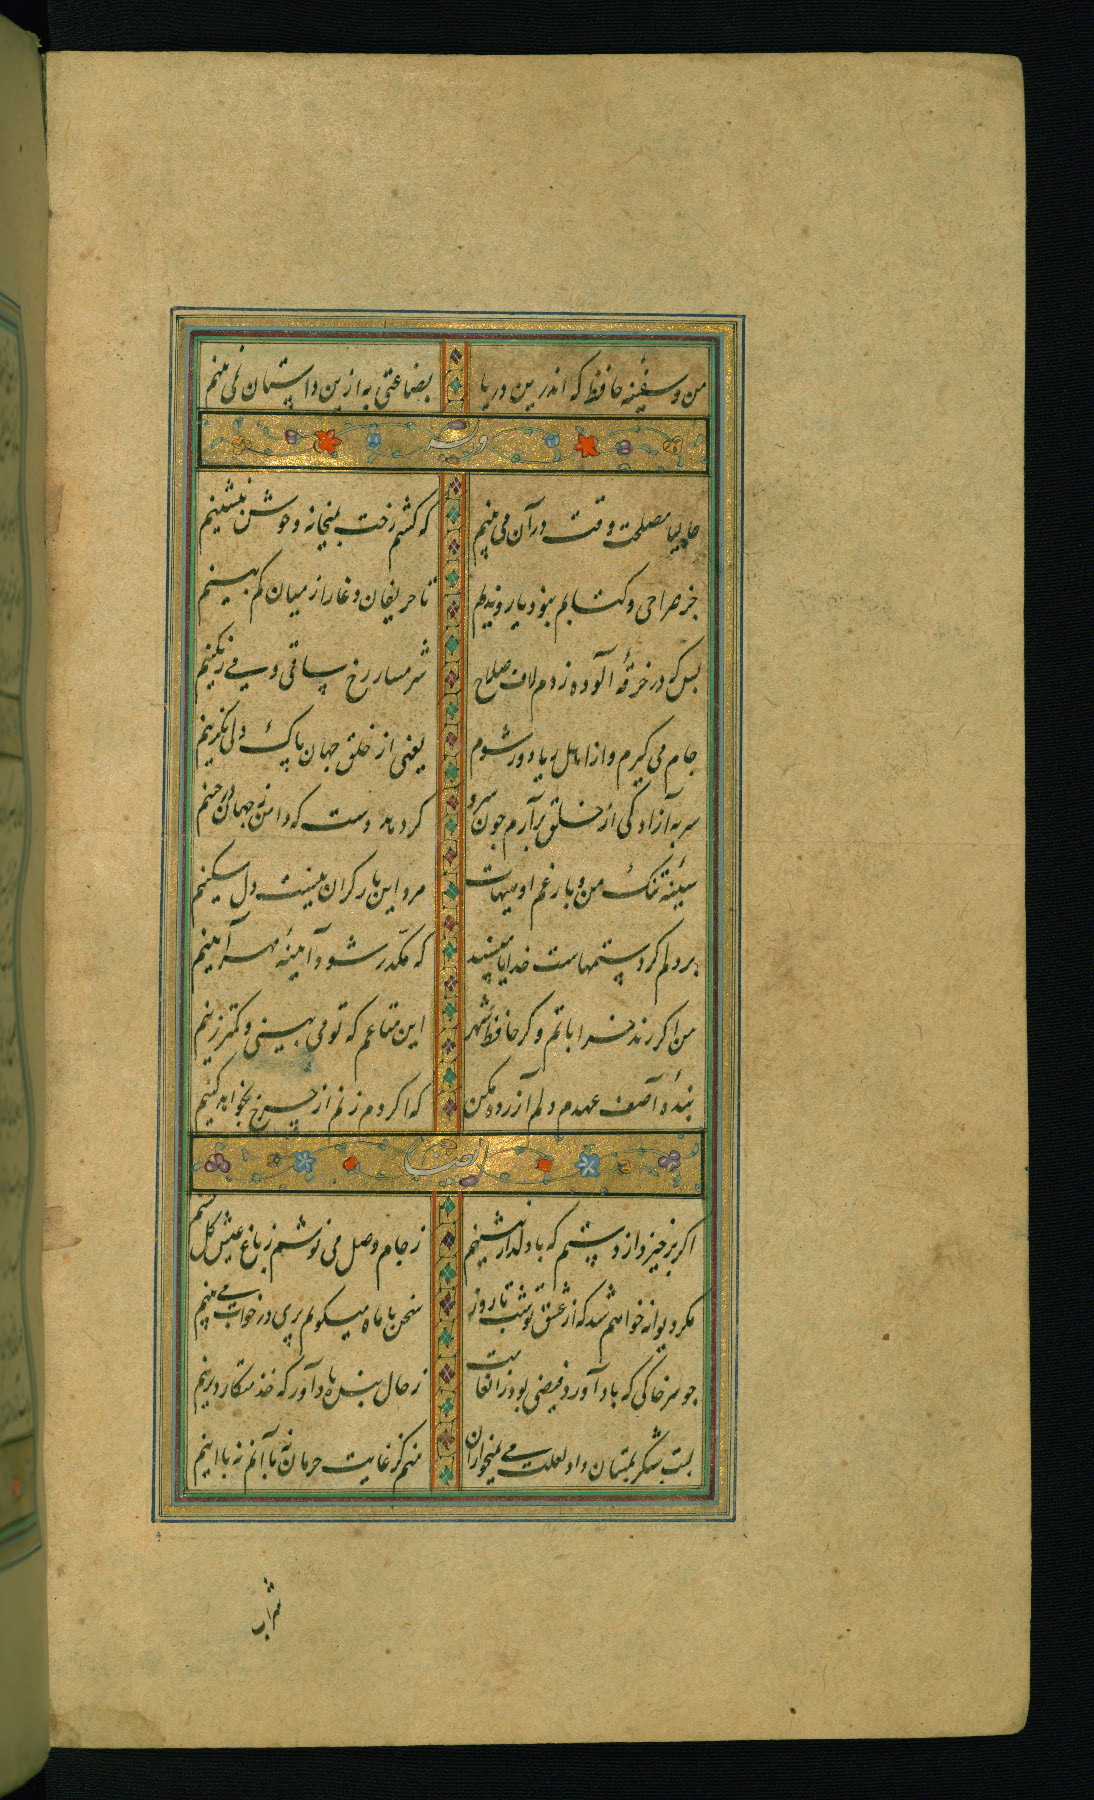 من و سفینه حافظ که اندرین دریا بضاعتی به ازین داستان نمی بینم
وله
حالیا مصلحت وقت در آن می بینم که کشم رخت بمیخانه و خوش بنشینم
جز صراحی و کتابم نبود یار و ندیم تا حریفان دغا را ز میان کم بینم
بس که در خرقهٔ آلوده زدم لاف صلاح شرمسار رخ ساقی و می رنگینم
جام می گیرم و از اهل ریا دور شوم یعنی از خلق جهان پاک دلی بگزینم
سر به آزادگی از خلق برآرم چون سرو گر دهد دست که دامن ز جهان در چینم
سینهٔ تنگ من و بار غم او هیهات مرد این بار گران نیست دل مسکینم
بر دلم گرد ستمهاست خدایا مپسند که مکدر شود آیینهٔ مهر آیینم
من اگر رند خراباتم و گر حافظ شهر این متاعم که تو می بینی و کمتر زینم
بندهٔ آصف عهدم دلم آزرده مکن که اگر دم زنم از چرخ بخواهد کینم
ایضا
اگر برخیزد از دستم که با دلدار بنشینم ز جام وصل می نوشم ز باغ عیش گل چینم
مگر دیوانه خواهم شد که از عشق تو شب تا روز سخن با ماه میگویم پری در خواب می بینم
چو هر خاکی که باد آورد فیضی بود ز انعامت ز حال بنده یاد آور که خدمتکار دیرینم
لبت شکر بمستان داد لعلت می بمیخواران منم کز غایت حرمان نه با آنم نه با اینم
شراب